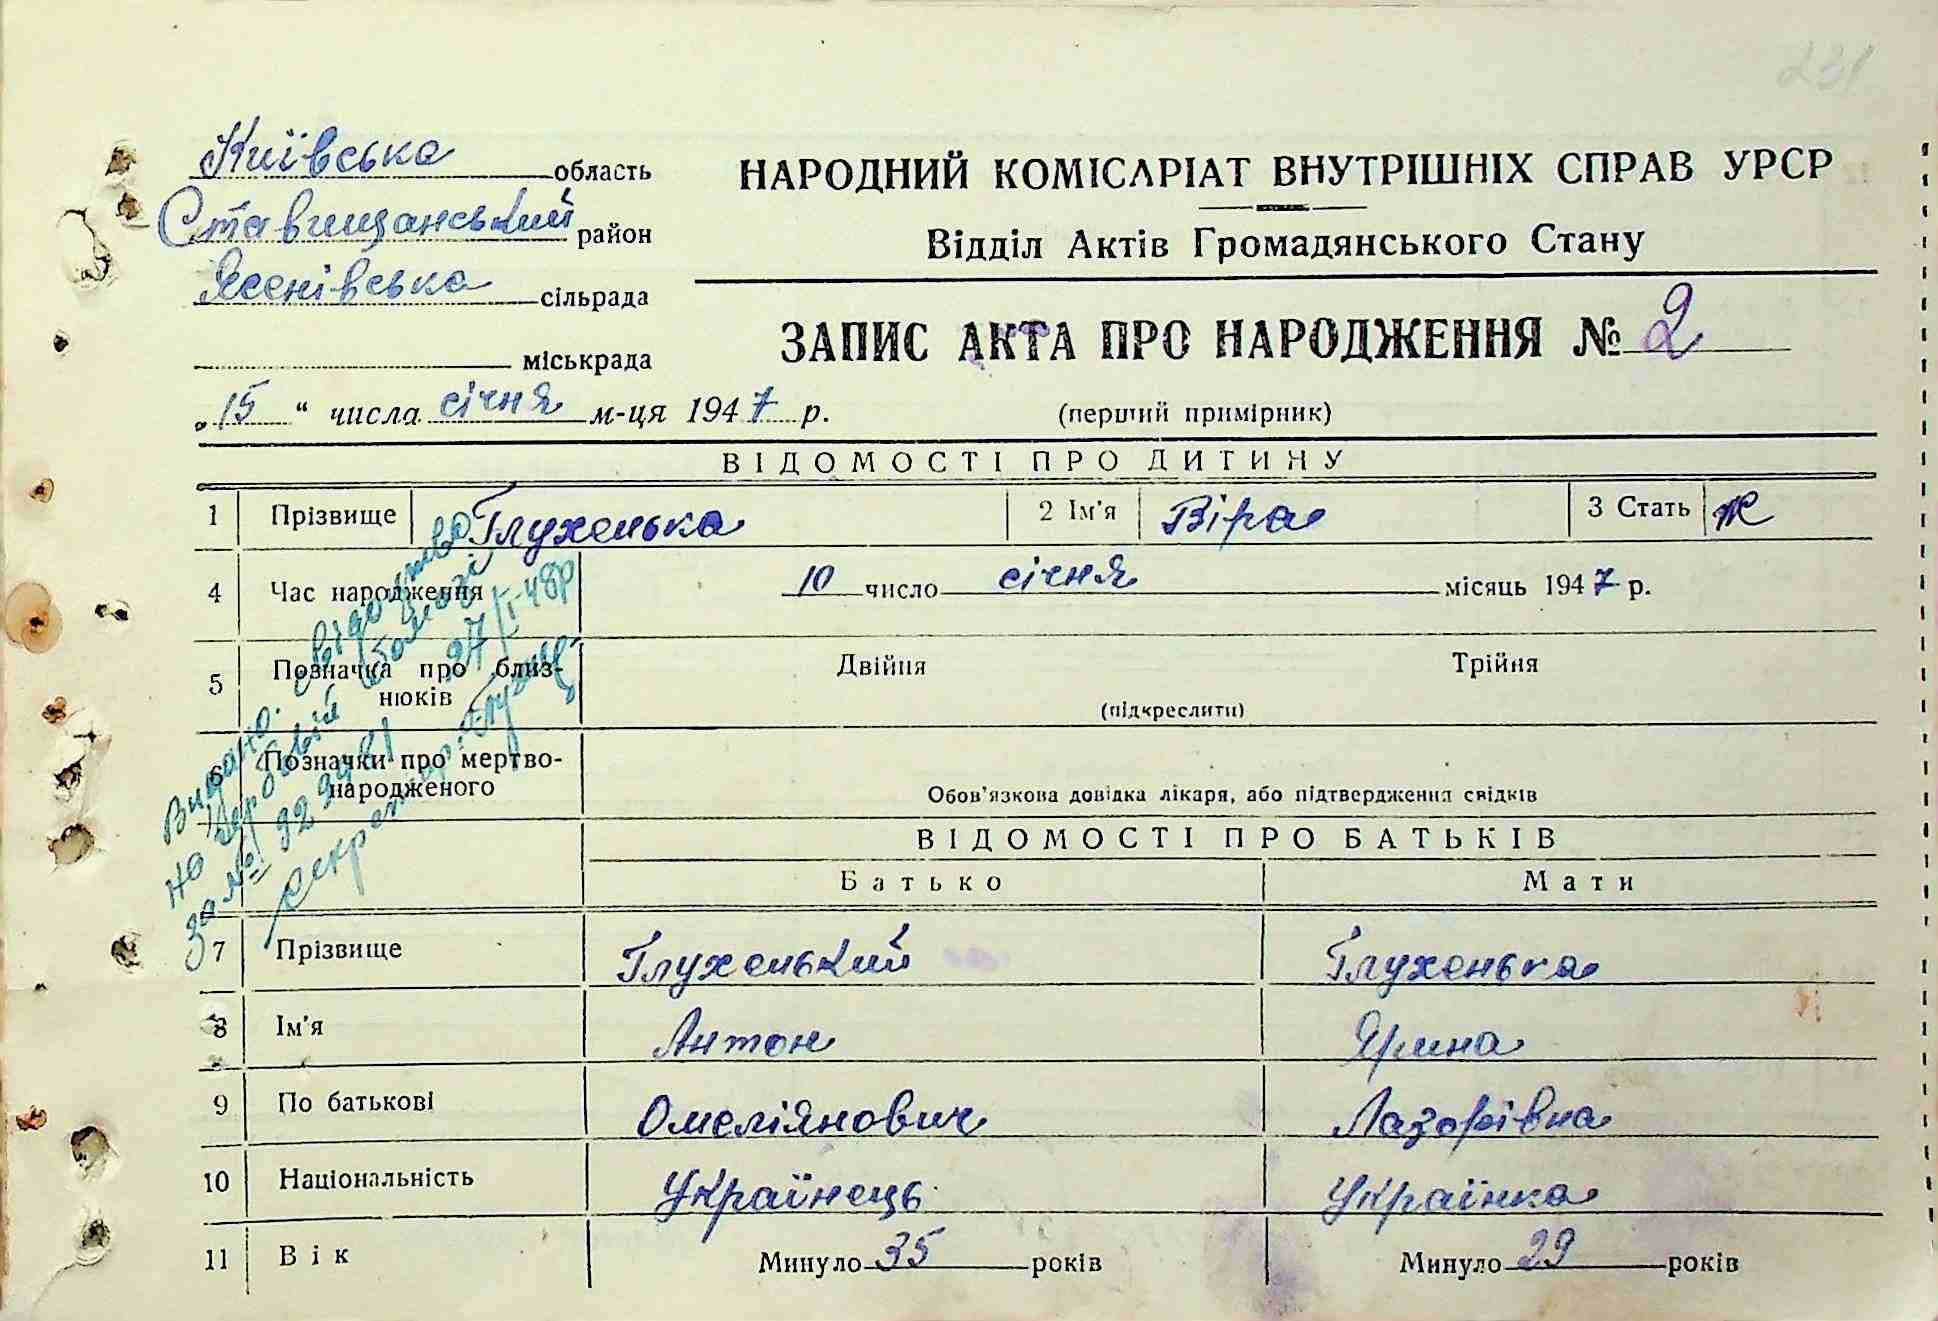 231
Київська область
Ставищанський район
Ясенівська сільрада
міськрада
„15“ числа січня м-ця 1947 р.
НАРОДНИЙ КОМІСАРІАТ ВНУТРІШНІХ СПРАВ УРСР
Відділ Актів Громадянського Стану
ЗАПИС АКТА ПРО НАРОДЖЕННЯ № 2
(перший примірник)
ВІДОМОСТІ ПРО ДИТИНУ
1 Прізвище Глухенька 2 Ім'я Віра 3 Стать ж
4 Час народження 10 число січня місяць 1947 р.
5 Позначка про близнюків Двійня Трійня
(підкреслити)
6 Позначки про мертвонародженого
Обов'язкова довідка лікаря, або підтвердження свідків
Видано свідоцтво
по
за №
27/I-48р
секретар
ВІДОМОСТІ ПРО БАТЬКІВ
Батько Мати
7 Прізвище Глухенький Глухенька
8 Ім'я Антон Ярина
9 По батькові Омеліянович Лазорівна
10 Національність Українець Українка
11 Вік Минуло 35 років Минуло 29 років